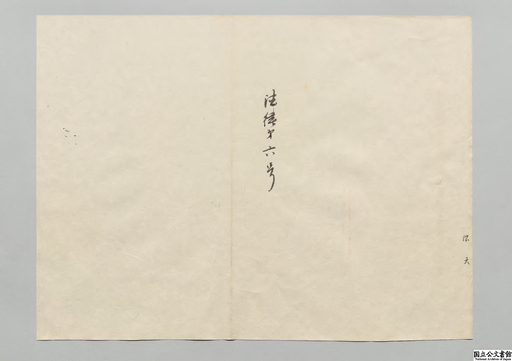 法律第六号
国立公文書館
National Archives of Japan